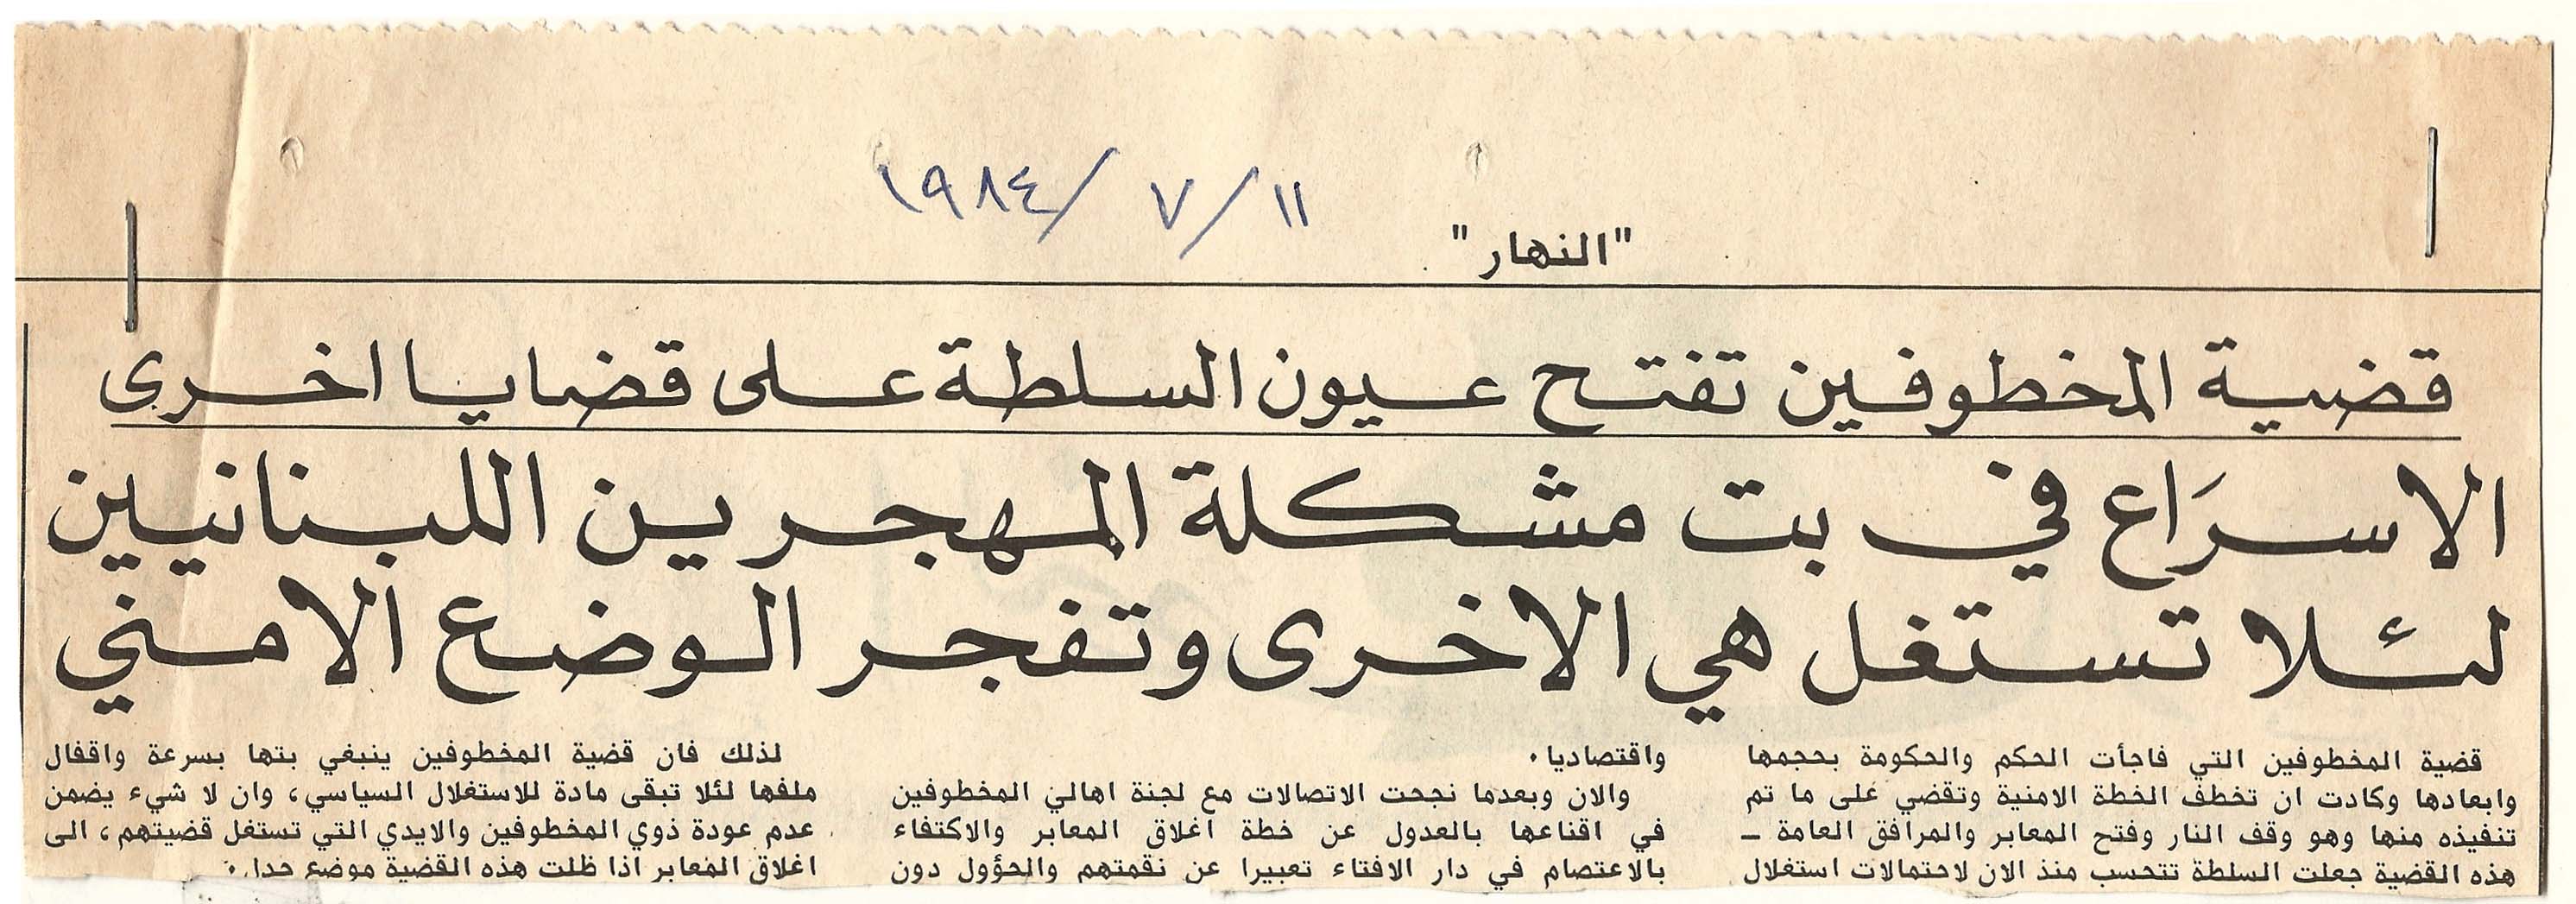 ١١/ ٧ /١٩٨٤
"النهار"
قضية المخطوفين تفتح عيون السلطة على قضايا اخرى
الاسرَاع في بت مشكلة المهجرين اللبنانيين
لئلا تستغل هي الاخرى وتفجر الوضع الامني
قضية المخطوفين التي فاجأت الحكم والحكومة بحجمها
وابعادها وكادت ان تخطف الخطة الامنية وتقضي على ما تم
تنفيذه منها وهو وقف النار وفتح المعابر والمرافق العامة –
هذه القضية جعلت السلطة تتحسب منذ الان لاحتمالات استغلال
واقتصاديا.
والان وبعدما نجحت الاتصالات مع لجنة اهالي المخطوفين
في اقناعها بالعدول عن خطة اغلاق المعابر والاكتفاء
بالاعتصام في دار الافتاء تعبيرا عن نقمتهم والحؤول دون
لذلك فان قضية المخطوفين ينبغي بتها بسرعة واقفال
ملفها لئلا تبقى مادة للاستغلال السياسي، وان لا شيء يضمن
عدم عودة ذوي المخطوفين والايدي التي تستغل قضيتهم، الى
اغلاق المعابر اذا ظلت هذه القضية موضع جدل.